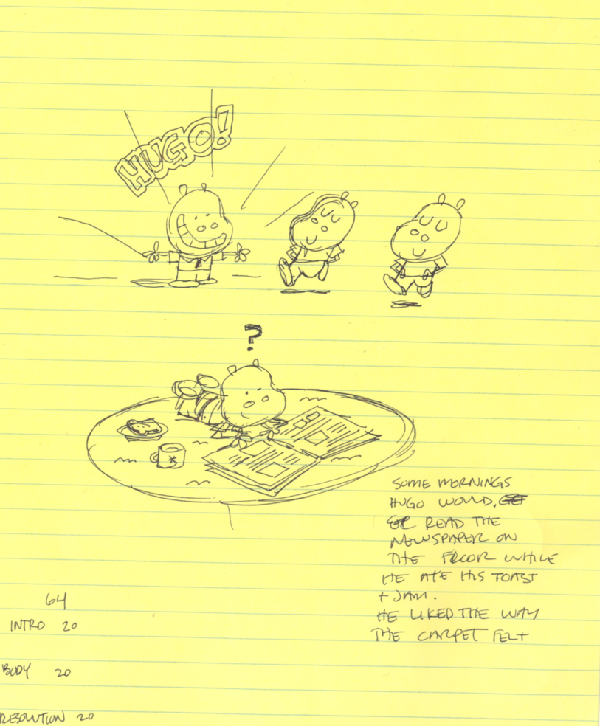 HUGO!
?
SOME MORNINGS
HUGO WOULD,
READ THE
NEWSPAPER ON
THE FLOOR WHILE
HE ATE HIS TOAST
+ JAM.
HE LIKED THE WAY
THE CARPET FELT
64
INTRO 20
BODY 20
RESOLUTION 20